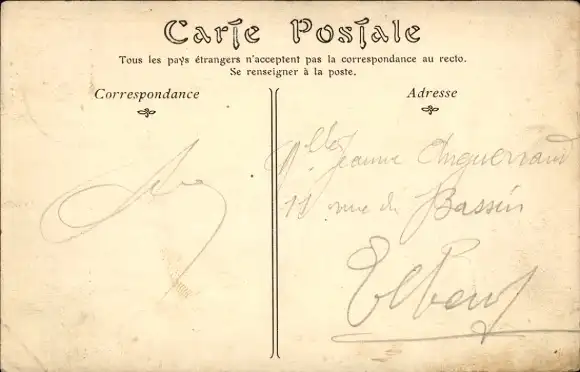 Carte Postale
Tous les pays étrangers n'acceptent pas la correspondance au recto.
Se renseigner à la poste.
Correspondance
Adresse
Mlle Jeanne Enguerrand
11 rue du Bassin
Elbeuf